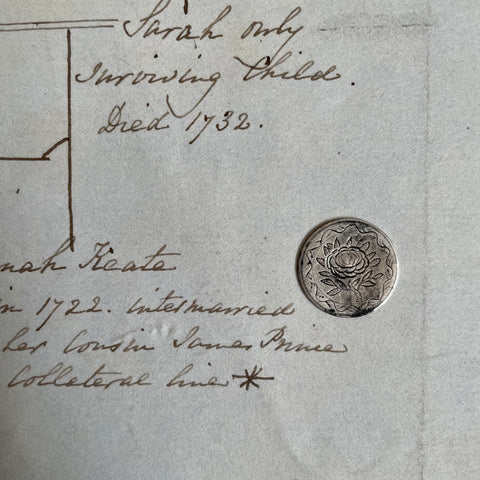 Sarah only
surviving Child.
Died 1732.
nah Keate
in 1722. intermarried
her Cousin James Prince
Collateral line *